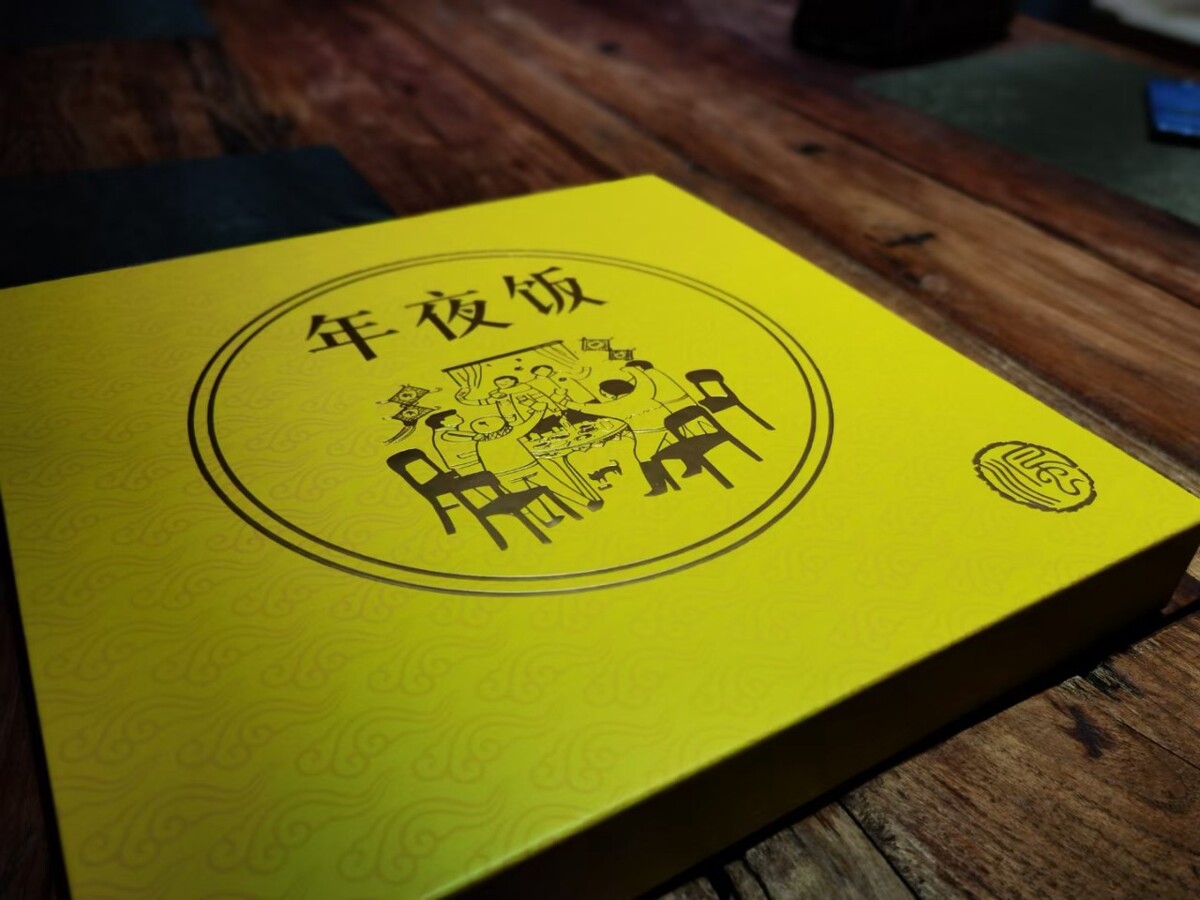 年夜饭